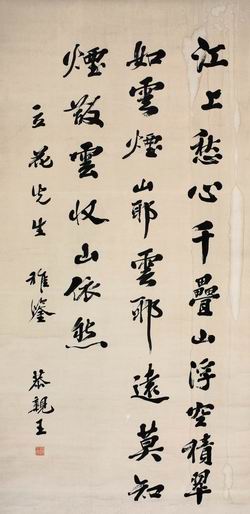 江上愁心千疊山浮空積翠
如雲煙山耶雲耶遠莫知
煙散雲收山依然
立花先生 雅鑒
恭親王